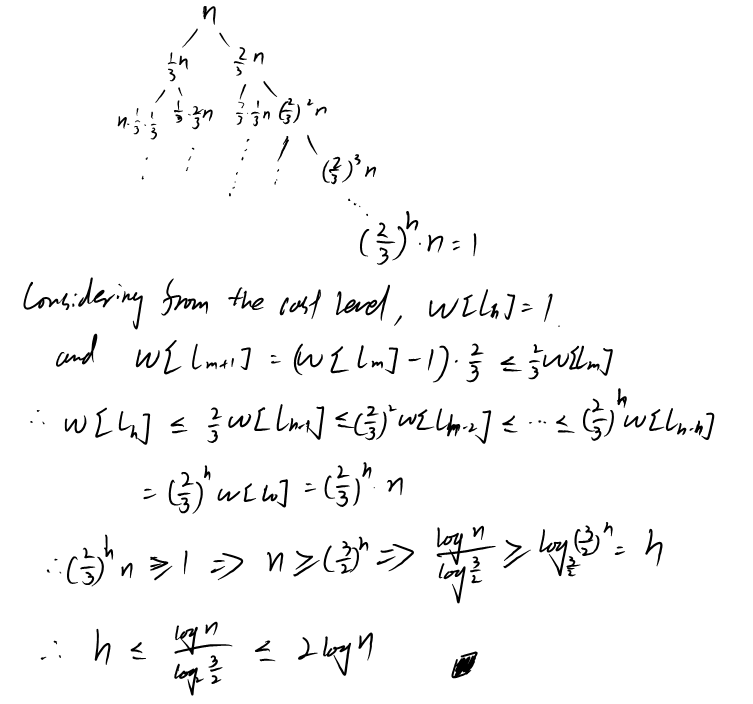 n
1/3 n 2/3 n
n·1/3·1/3 1/3·2/3 n 2/3·1/3 n (2/3)² n
(2/3)³ n
(2/3)^h · n = 1
Considering from the last level, W[l_h] = 1.
and W[l_{m+1}] = (W[l_m] - 1) · 2/3 ≤ 2/3 W[l_m]
∴ W[l_h] ≤ 2/3 W[l_{h-1}] ≤ (2/3)² W[l_{h-2}] ≤ ··· ≤ (2/3)^h W[l_{h-h}]
= (2/3)^h W[l_0] = (2/3)^h · n
∴ (2/3)^h n ≥ 1 ⇒ n ≥ (3/2)^h ⇒ log n / log 3/2 ≥ log_{3/2} (3/2)^h = h
∴ h ≤ log n / log₂ 3/2 ≤ 2 log n